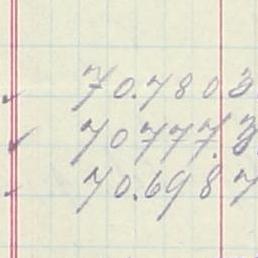 ✓ 70.7803
✓ 70777.3
✓ 70.6987